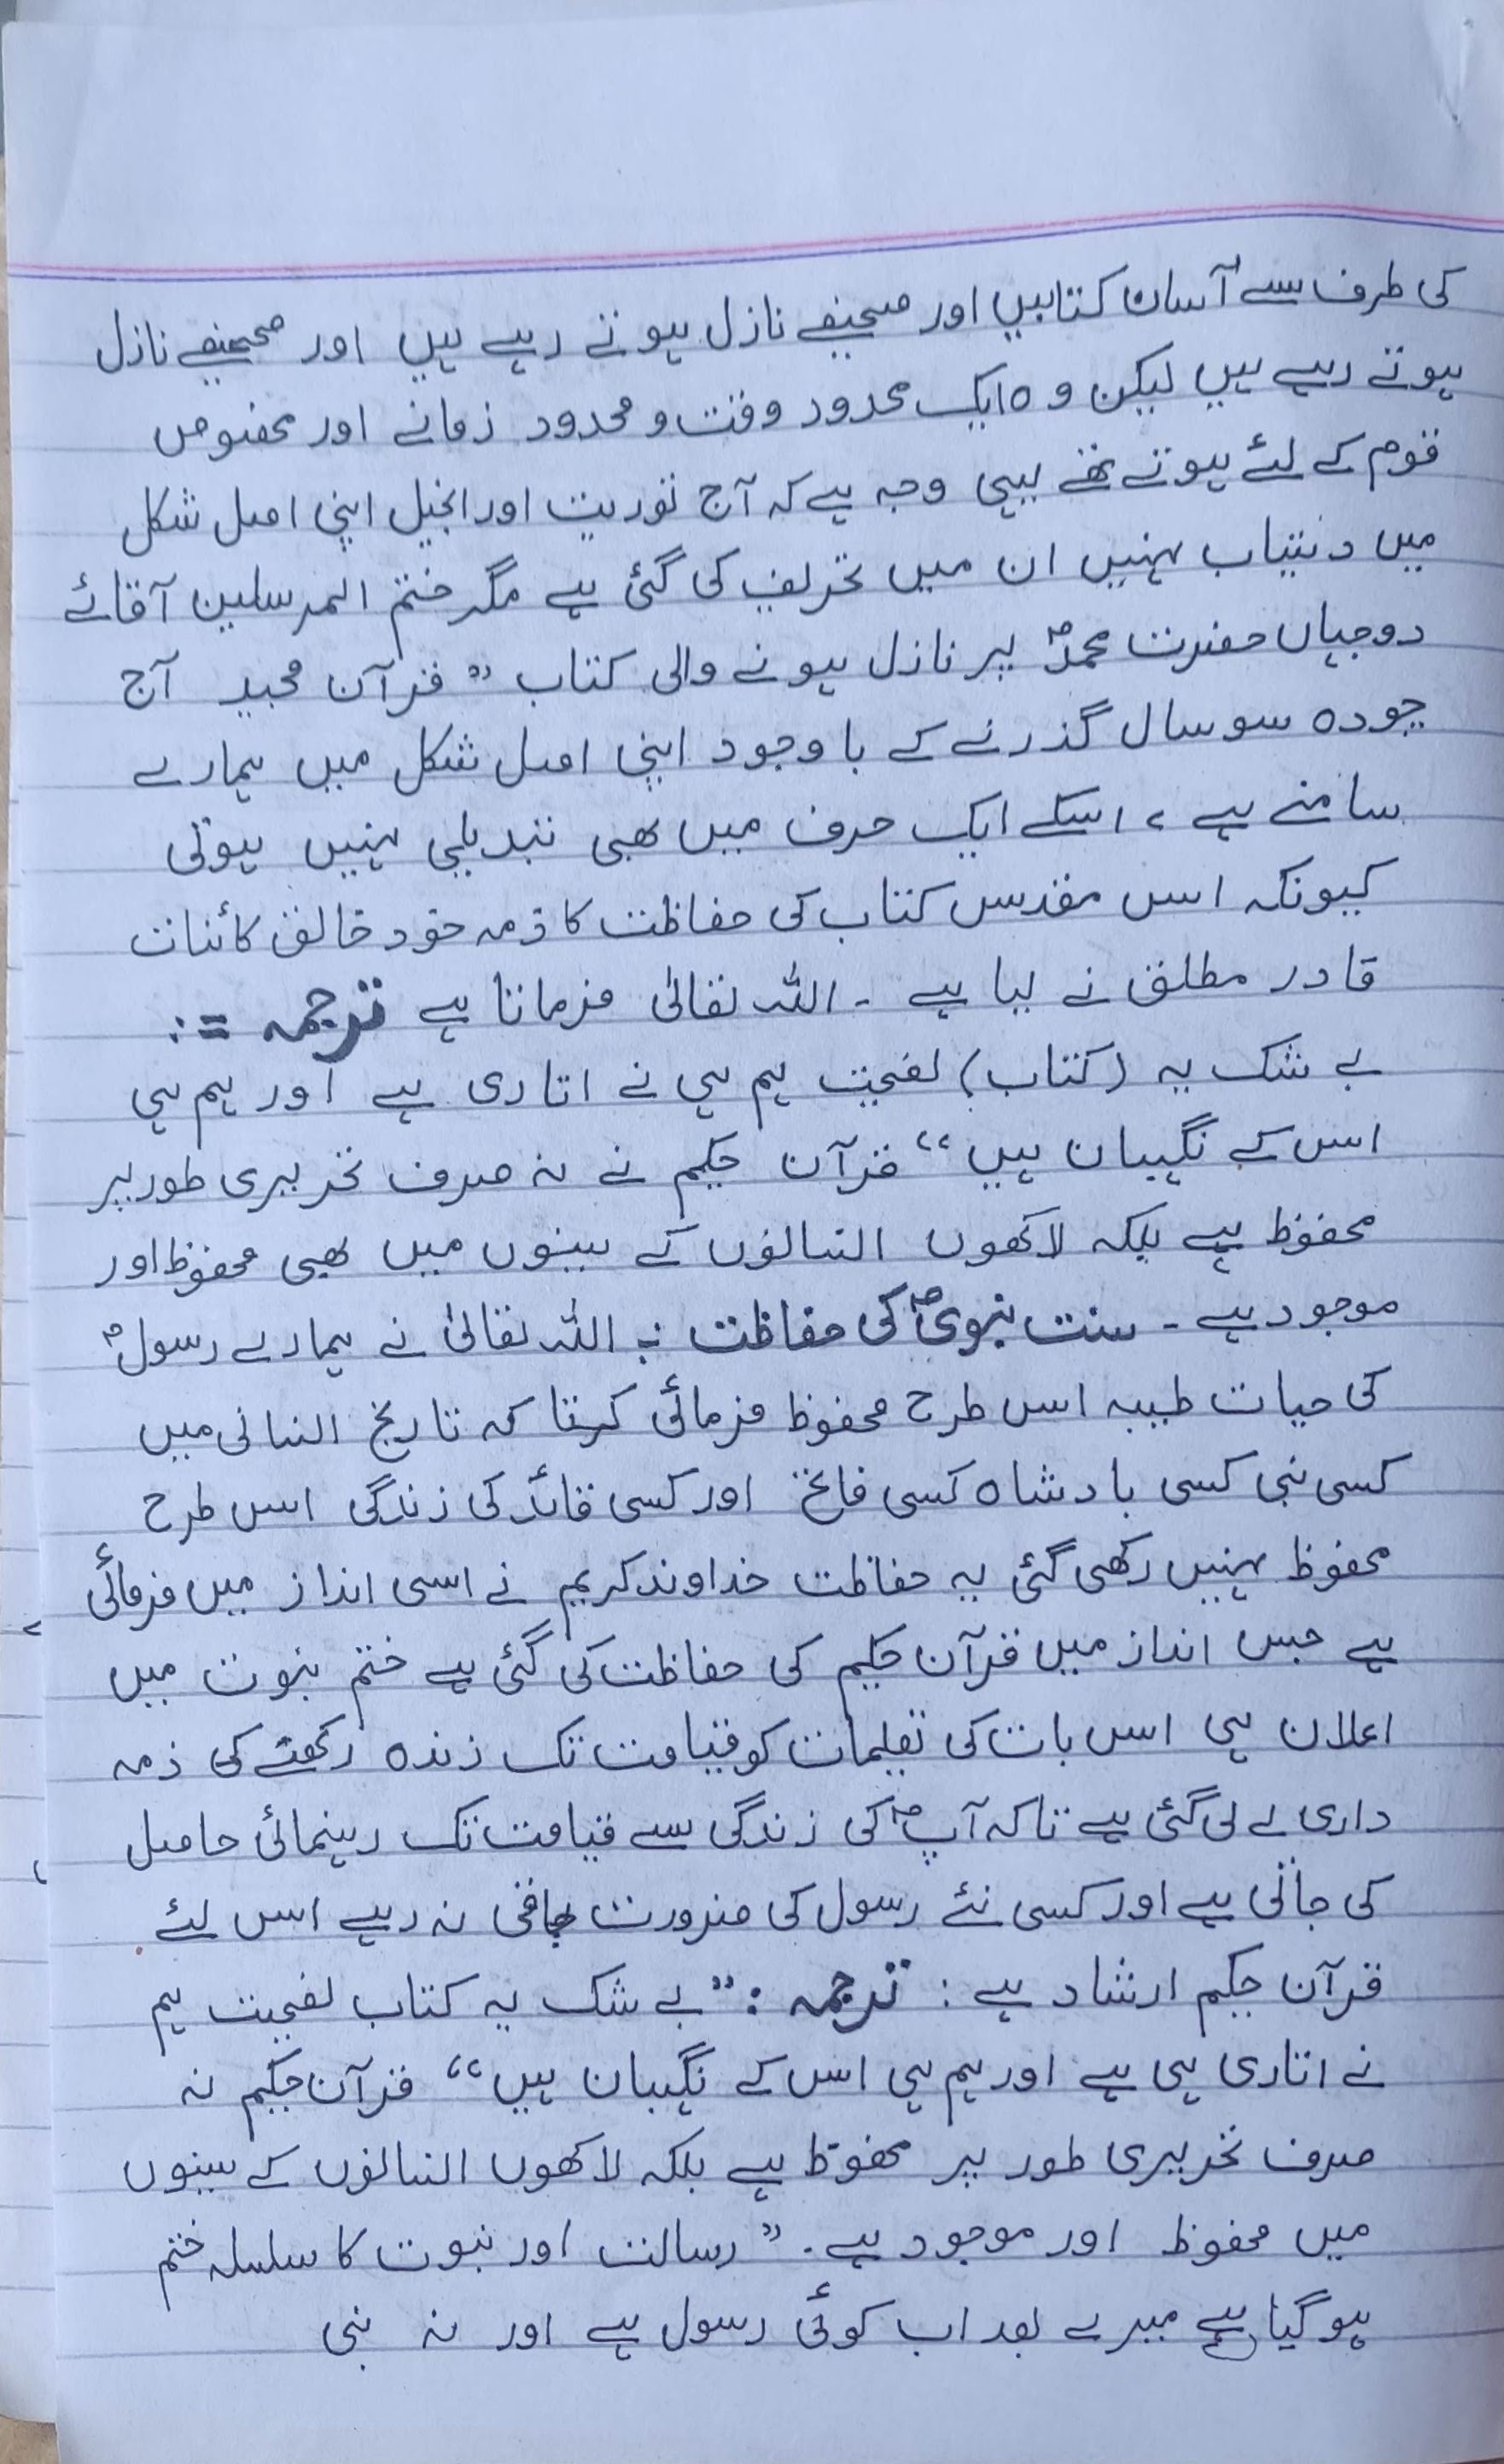 کی طرف سے آسان کتابیں اور صحیفے نازل ہوتے رہے ہیں اور صحیفے نازل
ہوتے رہے ہیں لیکن وہ ایک محدود وقت و محدود زمانے اور مخصوص
قوم کے لئے ہوتے تھے یہی وجہ ہے کہ آج توریت اور انجیل اپنی اصل شکل
میں دستیاب نہیں ان میں تحریف کی گئی ہے مگر ختم المرسلین آقائے
دوجہاں حضرت محمدؐ پر نازل ہونے والی کتاب " قرآن مجید آج
چودہ سو سال گذرنے کے باوجود اپنی اصل شکل میں ہمارے
سامنے ہے ، اسکے ایک حرف میں بھی تبدیلی نہیں ہوئی
کیونکہ اس مقدس کتاب کی حفاظت کا ذمہ خود خالق کائنات
قادر مطلق نے لیا ہے ۔ اللہ تعالیٰ فرماتا ہے ترجمہ =:
بے شک یہ (کتاب) نصیحت ہم ہی نے اتاری ہے اور ہم ہی
اس کے نگہبان ہیں“ قرآن حکیم نے نہ صرف تحریری طور پر
محفوظ ہے بلکہ لاکھوں انسانوں کے سینوں میں بھی محفوظ اور
موجود ہے ۔ سنت نبویؐ کی حفاظت :۔ اللہ تعالیٰ نے ہمارے رسولؐ
کی حیات طیبہ اس طرح محفوظ فرمائی کرتا کہ تاریخ انسانی میں
کسی نبی کسی بادشاہ کسی فاتح اور کسی قائد کی زندگی اس طرح
محفوظ نہیں رکھی گئی یہ حفاظت خداوند کریم نے اسی انداز میں فرمائی
ہے جس انداز میں قرآن حکیم کی حفاظت کی گئی ہے ختم نبوت میں
اعلان ہی اس بات کی تعلیمات کو قیامت تک زندہ رکھنے کی ذمہ
داری لے لی گئی ہے تاکہ آپؐ کی زندگی سے قیامت تک رہنمائی حاصل
کی جاتی ہے اور کسی نئے رسول کی ضرورت باقی نہ رہے اس لئے
قرآن حکیم ارشاد ہے : ترجمہ : ”بے شک یہ کتاب نصیحت ہم
نے اتاری ہی ہے اور ہم ہی اس کے نگہبان ہیں“ قرآن حکیم نہ
صرف تحریری طور پر محفوظ ہے بلکہ لاکھوں انسانوں کے سینوں
میں محفوظ اور موجود ہے. ” رسالت اور نبوت کا سلسلہ ختم
ہو گیا ہے میرے بعد اب کوئی رسول ہے اور نہ نبی